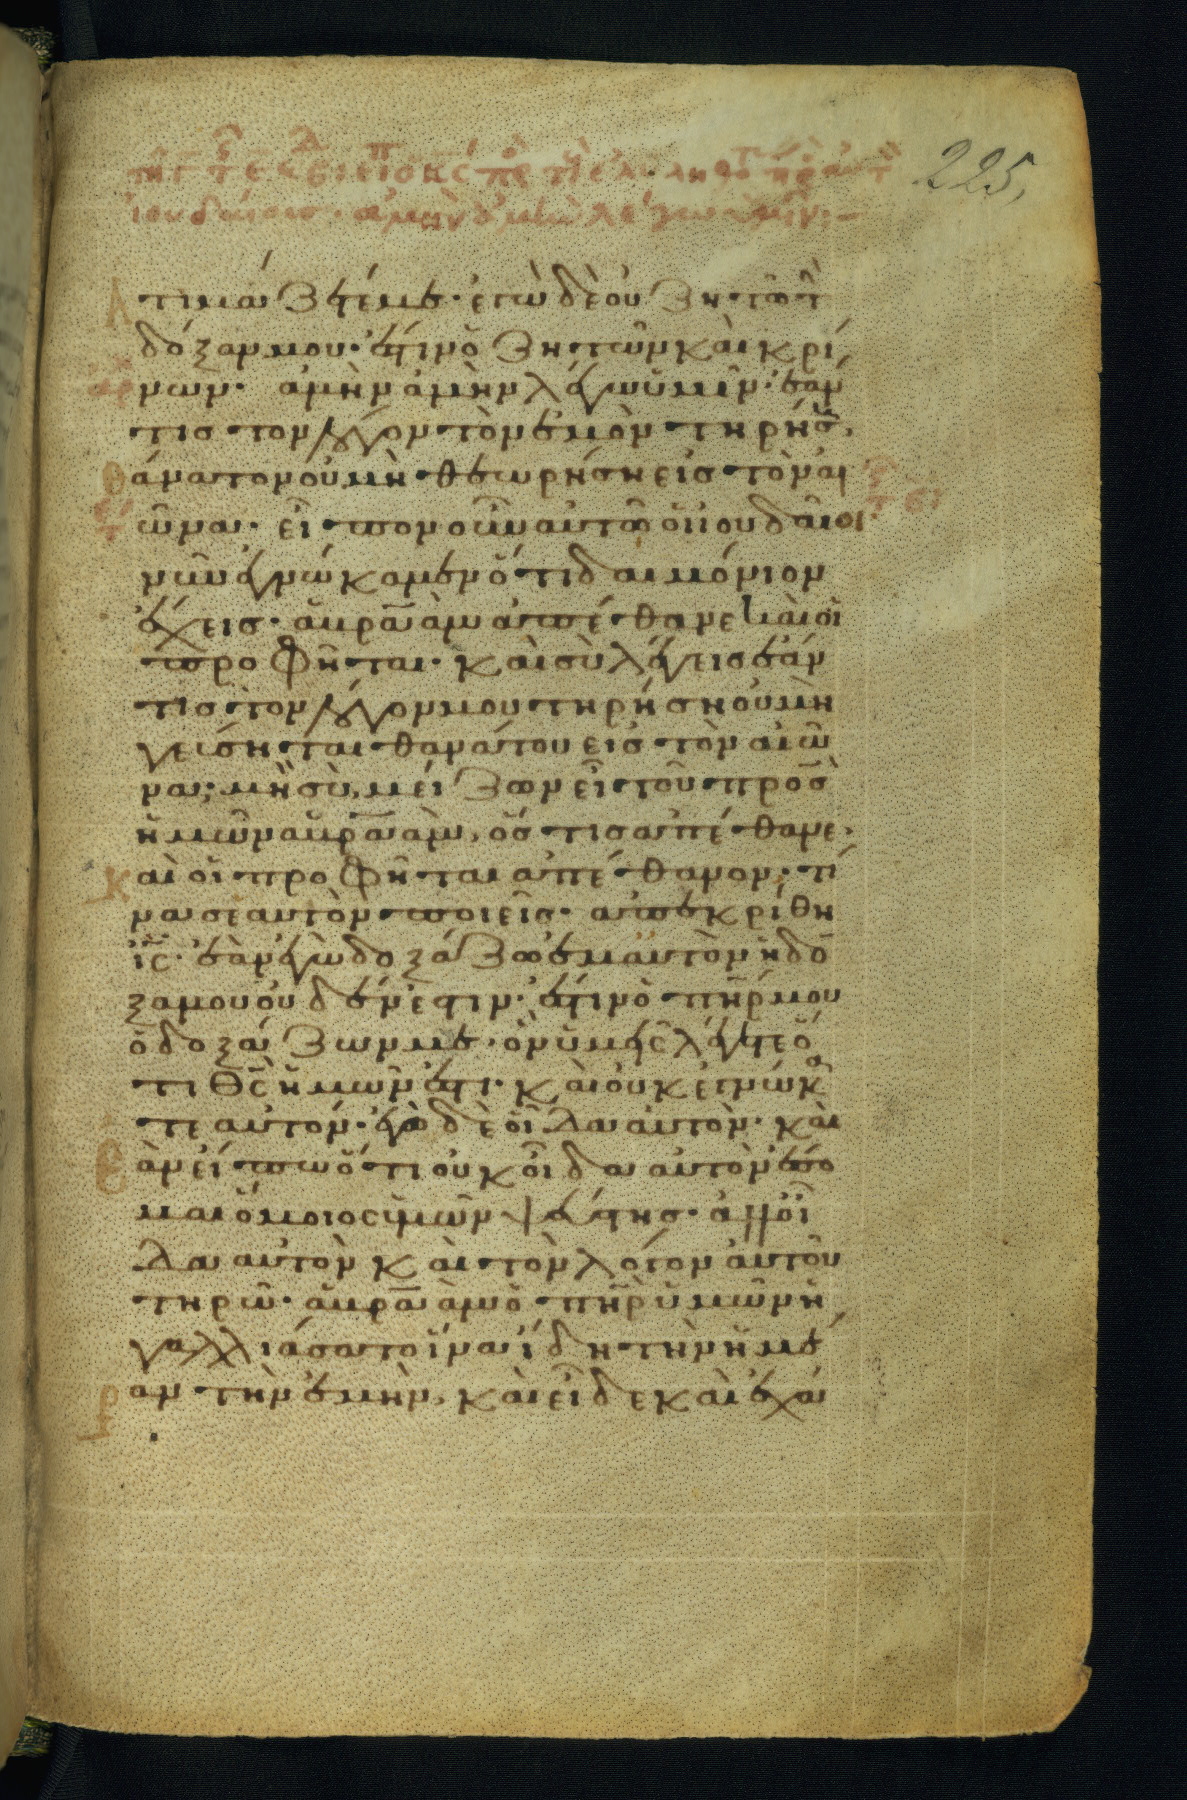 225,
ἰουδαίους· ἀμὴν ἀμὴν λέγω ὑμῖν:–
ἀτιμάζετέ με· ἐγὼ δὲ οὐ ζητῶ τὴν
δόξαν μου· ἔστιν ὁ ζητῶν καὶ κρί
νων· ἀμὴν ἀμὴν λέγω ὑμῖν· ἐάν
τις τον λόγον τὸν ἐμὸν τηρήσῃ,
θάνατον οὐ μὴ θεωρήσῃ εἰς τὸν αἰ
ῶνα· εἶπον οὖν αυτῶ οἱ ἰουδαῖοι·
νῦν ἐγνώκαμεν ὅτι δαιμόνιον
ἔχεις· ἀβραὰμ ἀπέθανε καὶ οἱ
προφῆται· καὶ σὺ λέγεις ἐάν
τις τον λόγον μου τηρήσῃ οὐ μὴ
γεύσηται θανάτου εἰς τὸν αἰῶ
να; μὴ σὺ μείζων εἶ τοῦ πρ̅ς̅
ἡμῶν ἀβραὰμ, ὅστις ἀπέθανε·
καὶ οἱ προφῆται ἀπέθανον· τί
να σεαυτὸν ποιεῖς· ἀπεκρίθη
ι̅ς̅· ἐὰν ἐγὼ δοξάζω ἐμαυτὸν ἡ δό
ξα μου οὐδέν ἐστιν· ἔστιν ὁ π̅η̅ρ̅ μου
ὁ δοξάζων με· ὃν ὑμεῖς λέγετε ὅ
τι θ̅ς̅ ἡμῶν ἐστι· καὶ οὐκ ἐγνώκα
τε αὐτόν· ἐγὼ δὲ οἶδα αὐτὸν· καὶ
ἐὰν εἴπω ὅτι οὐκ οἶδα αὐτὸν ἔσο
μαι ὅμοιος ὑμῶν ψεύστης· ἀλλ' οἶ
δα αὐτὸν καὶ τὸν λόγον ἀυτοῦ
τηρῶ· ἀβραὰμ ὁ π̅η̅ρ̅ ὑμῶν ἠ
γαλλιάσατο ἵνα ἴδῃ τὴν ἡμέ
ραν τὴν ἐμὴν, καὶ εἶδε καὶ ἐχά